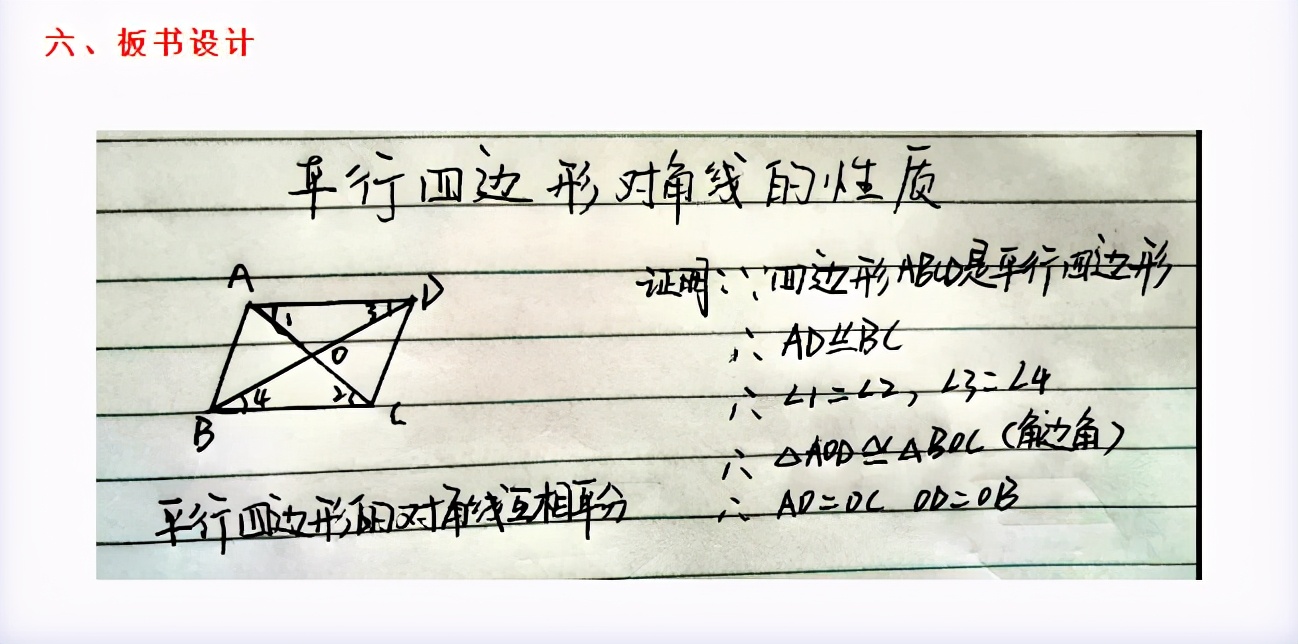 六、板书设计
平行四边形对角线的性质
A
D
1
3
O
4
2
B
C
证明:∵四边形ABCD是平行四边形
∴ AD⫽BC
∴ ∠1=∠2, ∠3=∠4
∴ △AOD≌△BOC (角边角)
∴ AO=OC OD=OB
平行四边形的对角线互相平分